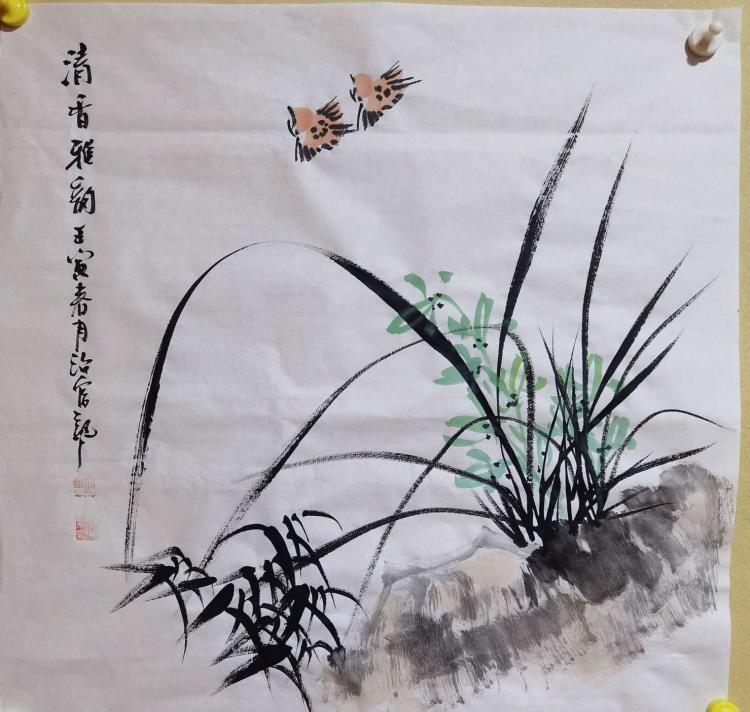 清香雅韵壬寅春月治官記